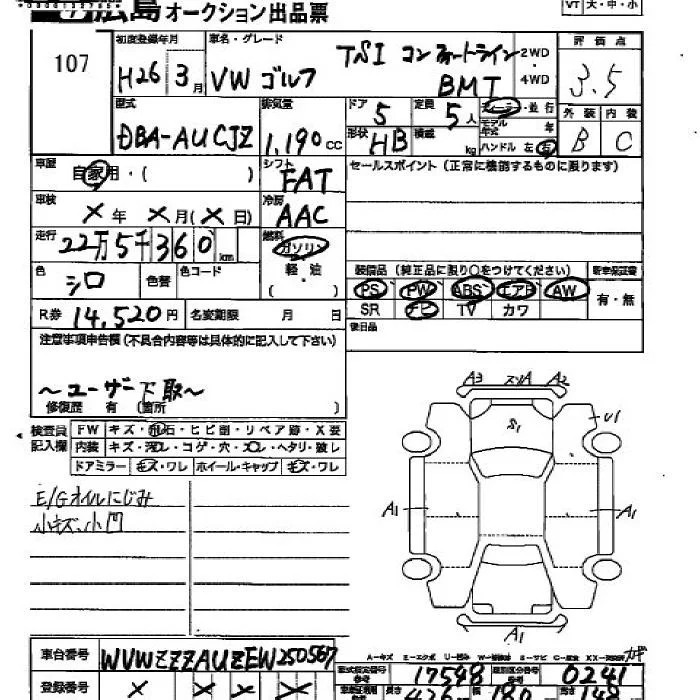 広島オークション出品票
VT 大・中・小
107
初度登録年月 車名・グレード 評価点
H26 3月 VW ゴルフ TSI コンフォートライン BMT 2WD 4WD 3.5
型式 排気量 ドア 定員 ディーラー・並行 外装 内装
DBA-AUCJZ 1,190cc 5 5人 モデル年式 年 B C
形状 HB 積載 kg ハンドル 左・右
車歴 自家用・( ) シフト FAT セールスポイント(正常に機能するものに限ります)
車検 ×年 ×月(×日) 冷房 AAC
走行 22万5千360km 燃料 ガソリン
色 シロ 色替 色コード 軽油 ( )
装備品(純正品に限り○をつけてください) 新車保証書
PS PW ABS エアB AW 有・無
SR ナビ TV カワ
R券 14,520円 名変期限 月 日 後日品
注意事項申告欄(不具合内容等は具体的に記入して下さい)
~ユーザー下取~
修復歴 有 (箇所 )
検査員記入欄 FW キズ・飛石・ヒビ割・リペア跡・X要
内装 キズ・汚レ・コゲ・穴・スレ・ヘタリ・破レ
ドアミラー キズ・ワレ ホイール・キャップ キズ・ワレ
E/Gオイルにじみ
小キズ、小凹
A3 スリA A2
S1
U1
A1 A1
A1
A-キズ E-エクボ U-凹み
車台番号 WVWZZZAUZEW250567
型式指定番号 17548 類別区分番号 0241
登録番号 × × × ×
長さ 426 幅 180